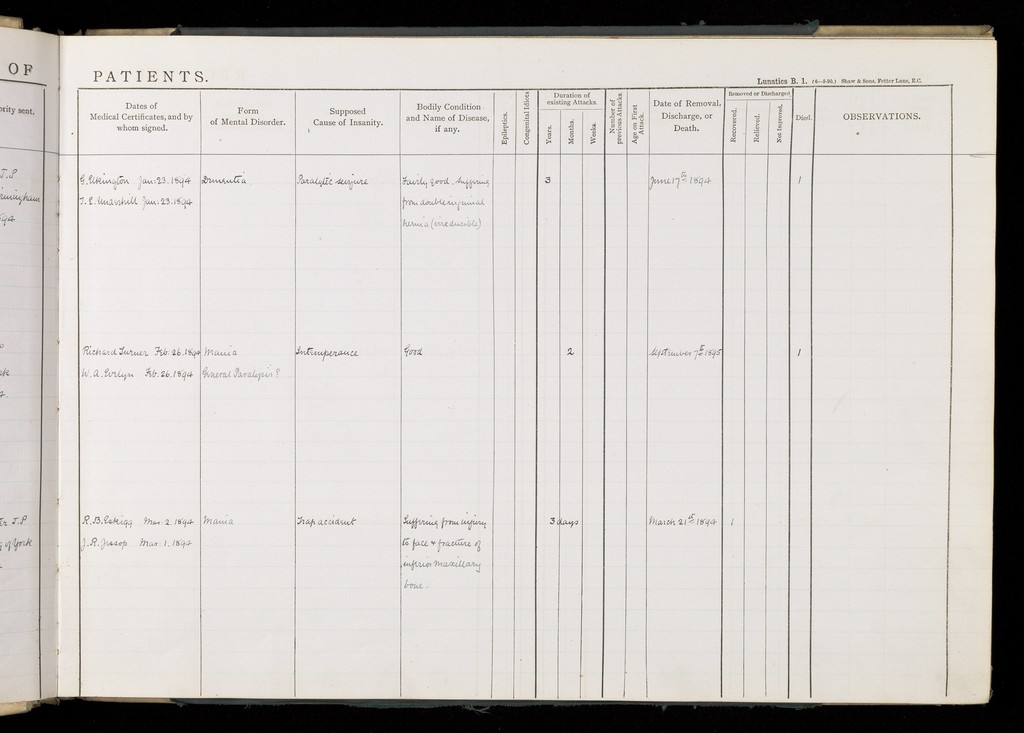 OF
PATIENTS.
Lunatics B. 1. (6—8-90.) Shaw & Sons, Fetter Lane, E.C.
ority sent.
Dates of
Medical Certificates, and by
whom signed.
Form
of Mental Disorder.
Supposed
Cause of Insanity.
Bodily Condition
and Name of Disease,
if any.
Epileptics.
Congenital Idiots
Duration of
existing Attacks.
Years.
Months.
Weeks.
Number of
previous Attacks
Age on First
Attack.
Date of Removal,
Discharge, or
Death.
Removed or Discharged.
Recovered.
Relieved.
Not Improved.
Died.
OBSERVATIONS.
J.P
G. Elkington Jan: 23. 1894 Dementia Paralytic seizure Fairly good. Suffering 3 June 17th 1894 1
T. E. Underhill Jan. 23. 1894 from double inguinal
hernia (irreducible)
Richard Turner Feb. 26. 1894 Mania Intemperance Good 2 September 7th 1895 1
W. A. Evelyn Feb. 26. 1894 General Paralysis?
R. B. Mar. 2. 1894 Mania Trap accident Suffering from injury 3 days March 21st 1894 1
J. R. Jessop Mar. 1. 1894 to face & fracture of
inferior maxillary
bone.
J.P
of York